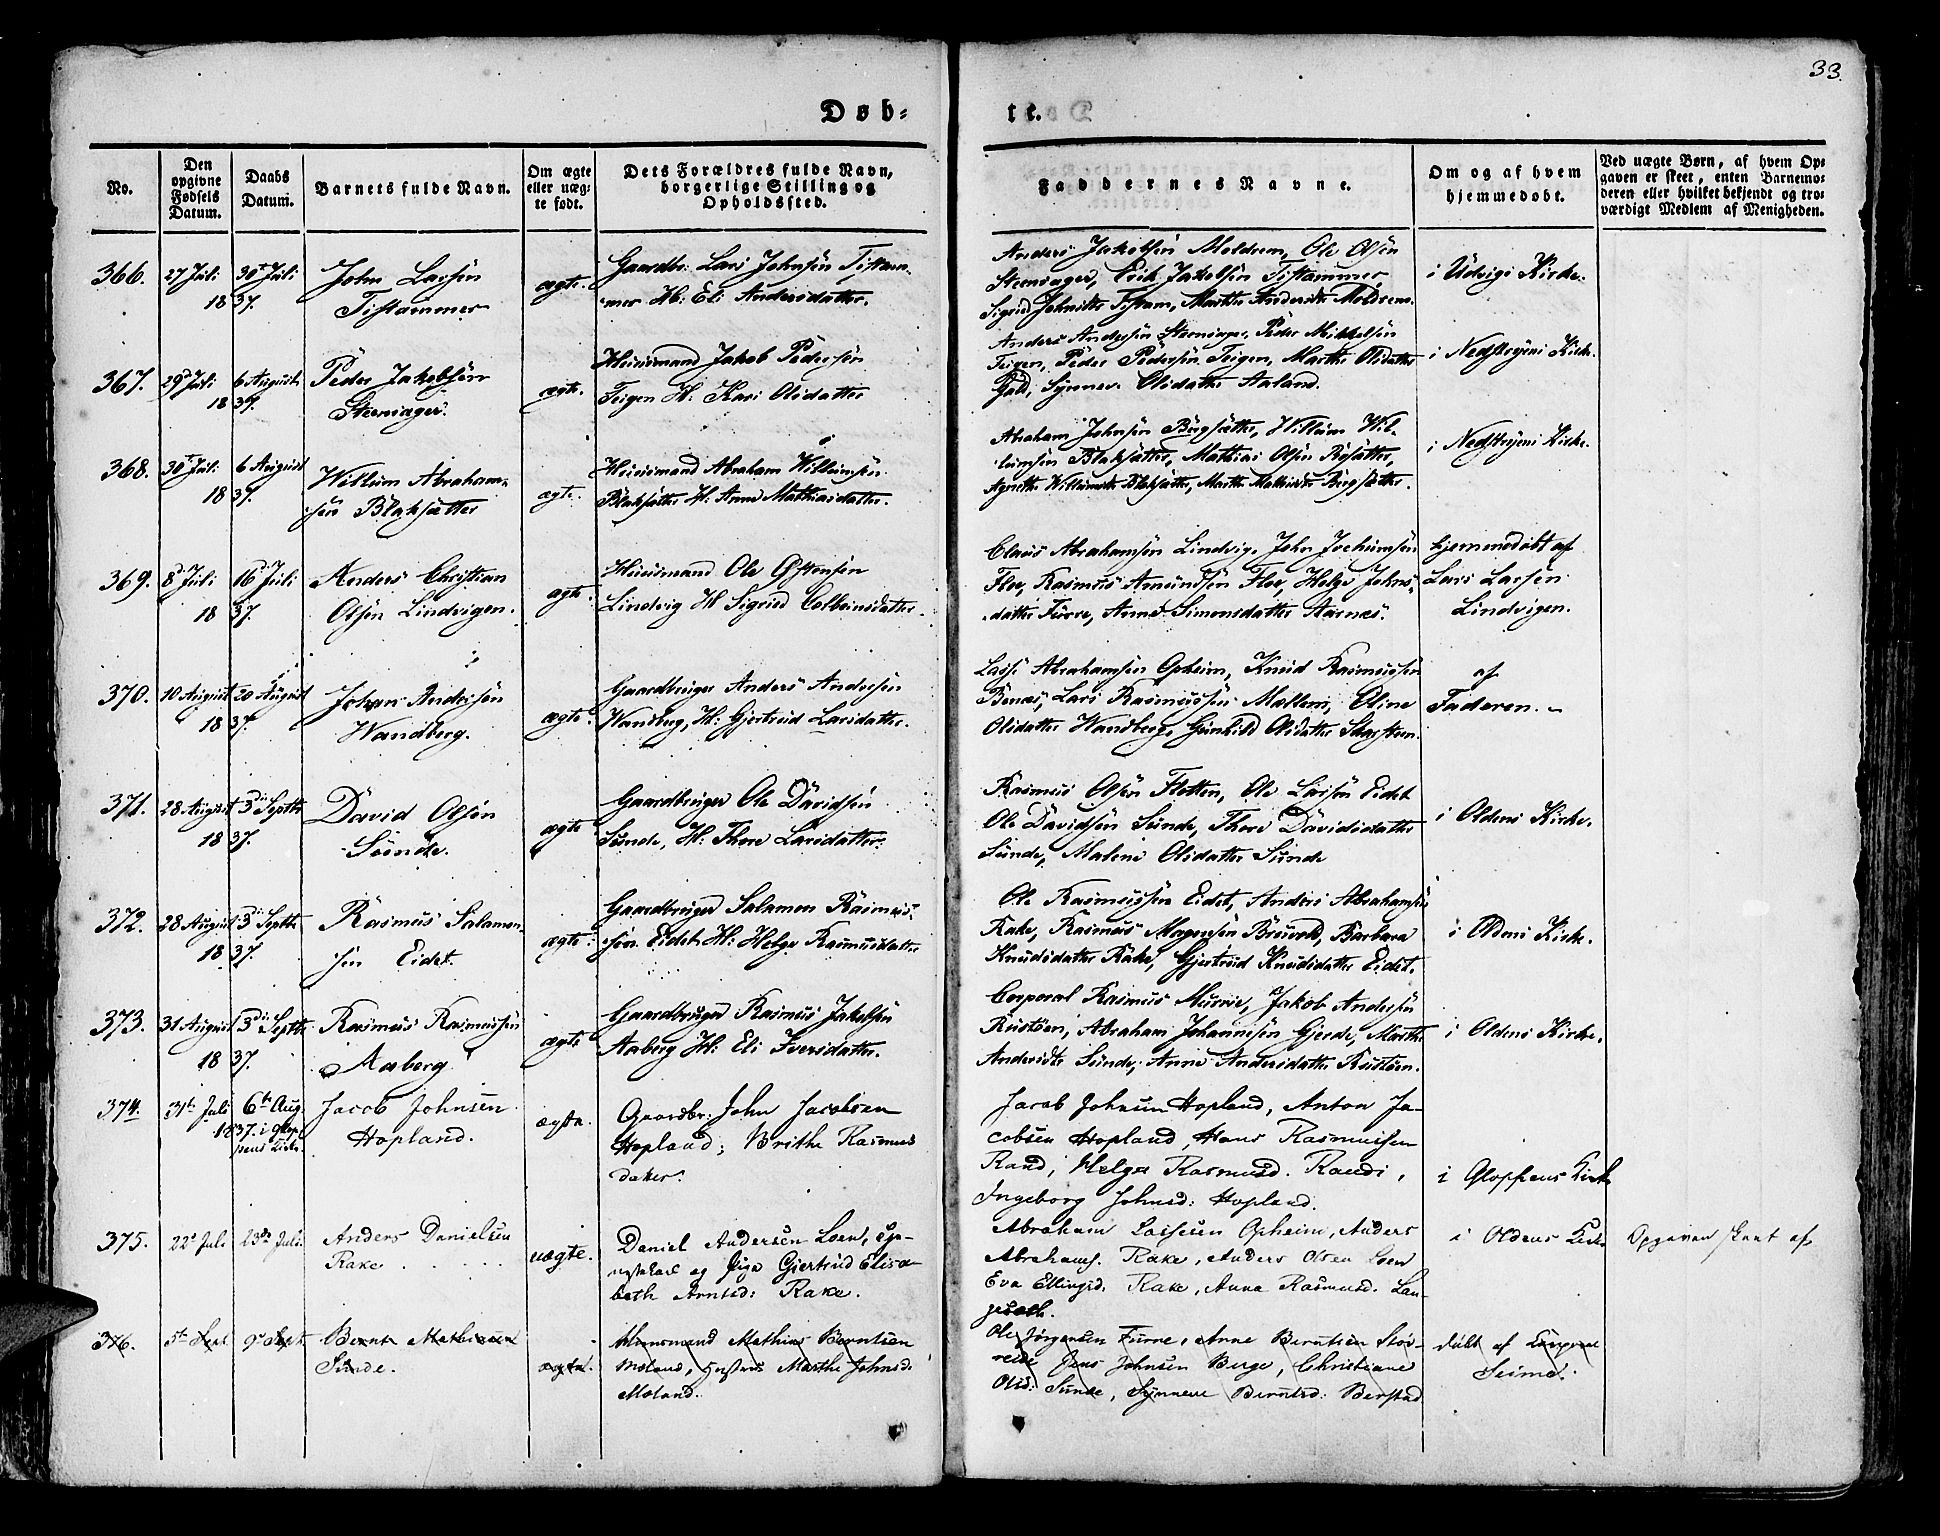 33.
Døb-
te.
No.
Den opgivne Fødsels Datum.
Daabs Datum.
Barnets fulde Navn.
Om ægte eller uæg-te født.
Dets Forældres fulde Navn, borgerlige Stilling og Opholdssted.
Faddernes Navne.
Om og af hvem hjemmedøbt.
Ved uægte Børn, af hvem Op-gaven er skeet, enten Barnemo-deren eller hvilket bekjendt og tro-værdigt Medlem af Menigheden.
366. 27 Juli 1837. 30te Juli
John Larsøn
Tistammer
ægte.
Gaardbr: Lars Johnsøn Tistam-
mer H: Eli Andersdatter.
Anders Jakobsøn Moldrem, Ole Olsøn
Steensager, Erik Jakobsøn Tistammer,
Sigrid Johnsdtr Tistam, Marthe Andersdtr Moldrem.
i Udvigs Kirke.
367. 29d Juli 1837. 6 August
Peder Jakobsøn
Steensager.
ægte.
Huusmand Jakob Pedersøn
Teigen H: Kari Olsdatter
Anders Andersøn Steensager, Peder Mikkelsøn
Teigen, Peder Pedersøn Teigen, Marthe Olsdatter
Synnev Olsdatter Aaland.
i Nedstryens Kirke.
368. 30te Juli 1837. 6 August
Willum Abraham-
søn Blaksætter
ægte.
Huusmand Abraham Willumsøn
Blaksætter H: Anne Mathiasdatter.
Abraham Johnsøn Bergsætter, Willum Wil-
lumsøn Blaksætter, Mathias Olsøn
Agnethe Willumsdtr Blaksætter, Marthe Mathisdtr Bergsætter.
i Nedstryens Kirke.
369. 8d Juli 1837. 16d Juli
Anders Christian
Olsøn Lindvigen.
ægte.
Huusmand Ole Østensøn
Lindvig H Sigrid Colbeinsdatter.
Claus Abrahamsøn Lindvig, John Jochumsøn
Flor, Rasmus Amundsøn Flor, Helge Johns-
datter Furre, Anne Simonsdatter Aarnes.
hjemmedøbt af
Lars Larsøn
Lindvigen.
370. 10 August 1837. 20 August
Johan Andersøn
Wandberg.
ægte.
Gaardbruger Anders Andersøn
Wandberg, H: Gjertrud Larsdatter.
Lasse Abrahamsøn Opheim, Knud Rasmussøn
Benæs, Lars Rasmussøn Mællem, Eline
Olsdatter Wandberg, Gunhild Olsdatter
af
Faderen.
371. 28 August 1837. 3die Septbr
David Olsøn
Sunde.
ægte
Gaardbruger Ole Davidsøn
Sunde, H: Thore Larsdatter.
Rasmus Olsøn Flotten, Ole Larsøn Eidet
Ole Davidsøn Sunde, Thore Davidsdatter
Sunde, Malene Olsdatter Sunde
i Oldens Kirke.
372. 28 August 1837. 3die Septbr
Rasmus Salamon-
søn Eidet.
ægte.
Gaardbruger Salamon Rasmus-
søn Eidet H: Helge Rasmusdatter
Ole Rasmussøn Eidet, Anders Abrahamsøn
Rake, Rasmus Mogensøn Bruvold, Barbara
Knudsdatter Rake, Gjertrud Knudsdatter Eidet.
i Oldens Kirke.
373. 31 August 1837. 3die Septbr
Rasmus Rasmussøn
Aaberg
ægte
Gaardbruger Rasmus Jakobsøn
Aaberg H: Eli Iversdatter.
Corporal Rasmus Murrie, Jakob Andersøn
Rustøen, Abraham Johannesøn Gjerde, Marthe
Andersdtr Sunde, Anne Andersdatter Rustøen.
i Oldens Kirke.
374. 31te Juli 1837. 6te Aug. i Glop-pens Kirke
Jacob Johnsen
Hopland.
ægte.
Gaardbr: John Jacobsen
Hopland; Brithe Rasmus
datter.
Jacob Johnsen Hopland, Anton Ja-
cobsen Hopland, Hans Rasmussen
Rand, Helga Rasmusd. Raudi,
Ingeborg Johnsd: Hopland.
i Gloppens Kirke
375. 22de Juli 23de Juli.
Anders Danielsen
Rake
uægte.
Daniel Andersen Loen,
og Pige Giertrud Elisa-
beth Arntsd: Rake.
Abraham Lassesen Opheim, Anders
Abrahams. Rake, Anders Olsen Loen
Eva Ellingsd: Rake, Anna Rasmusd. Lan-
gesæth.
i Oldens Kirke
Opgaven skeet af
376. 5te Sept. 9de Sept.
Bernt Mathiasen
Sunde.
ægte.
Huusmand Mathias Berntsen
Moland, Marthe Johnsd:
Moland.
Ole Jørgensen Furne, Anne Berntsen Stø-
reide Jens Johnsen Berge, Christiane
Olsd: Sunde, Synneve Berntsd: Berstad
døbt af
Seime.